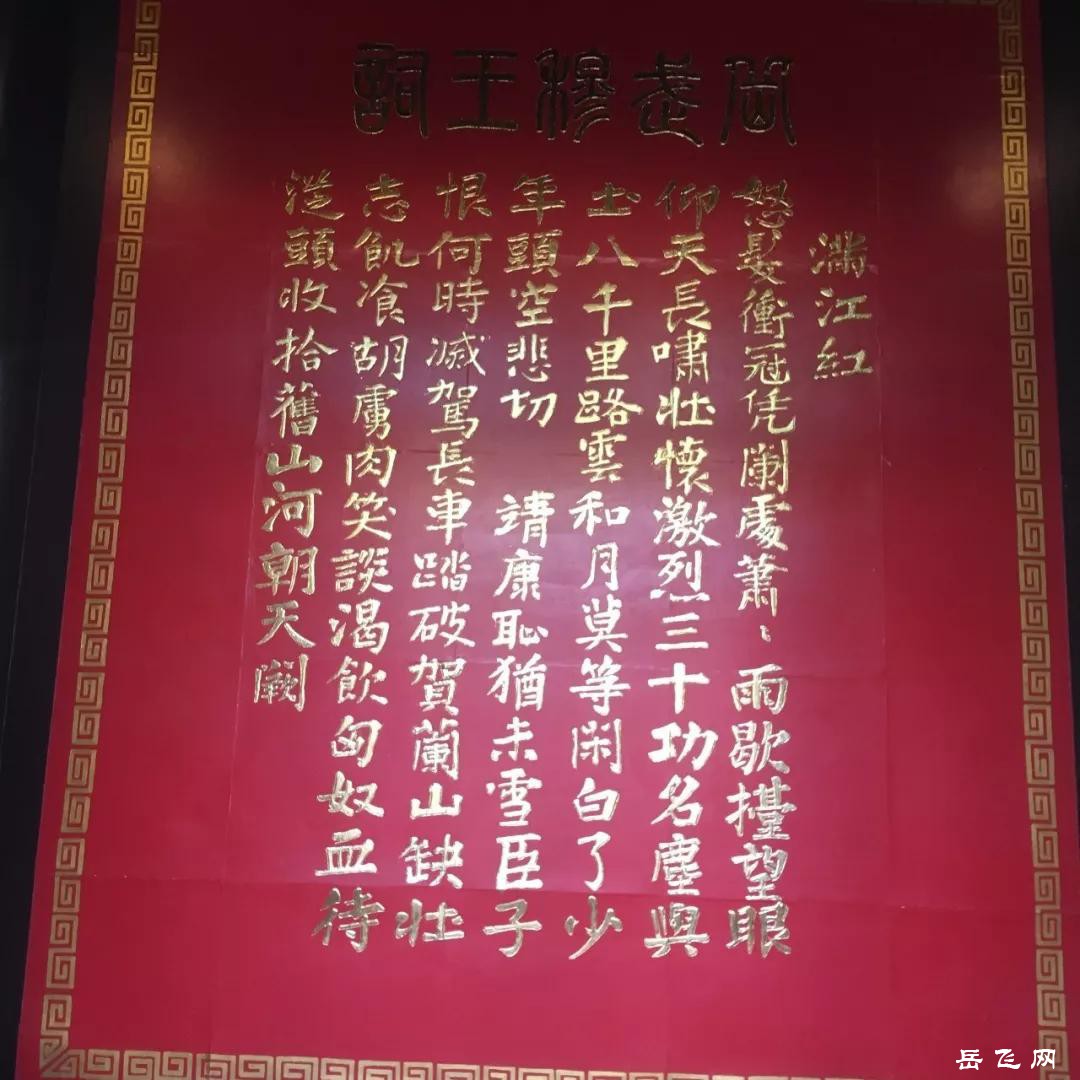 岳武穆王詞
滿江紅
怒髮衝冠凭闌處蕭〻雨歇擡望眼
仰天長嘯壯懷激烈三十功名塵與
土八千里路雲和月莫等閑白了少
年頭空悲切 靖康恥猶未雪臣子
恨何時滅駕長車踏破賀蘭山缺壯
志飢飡胡虜肉笑談渴飲匈奴血待
從頭收拾舊山河朝天闕
岳飞网